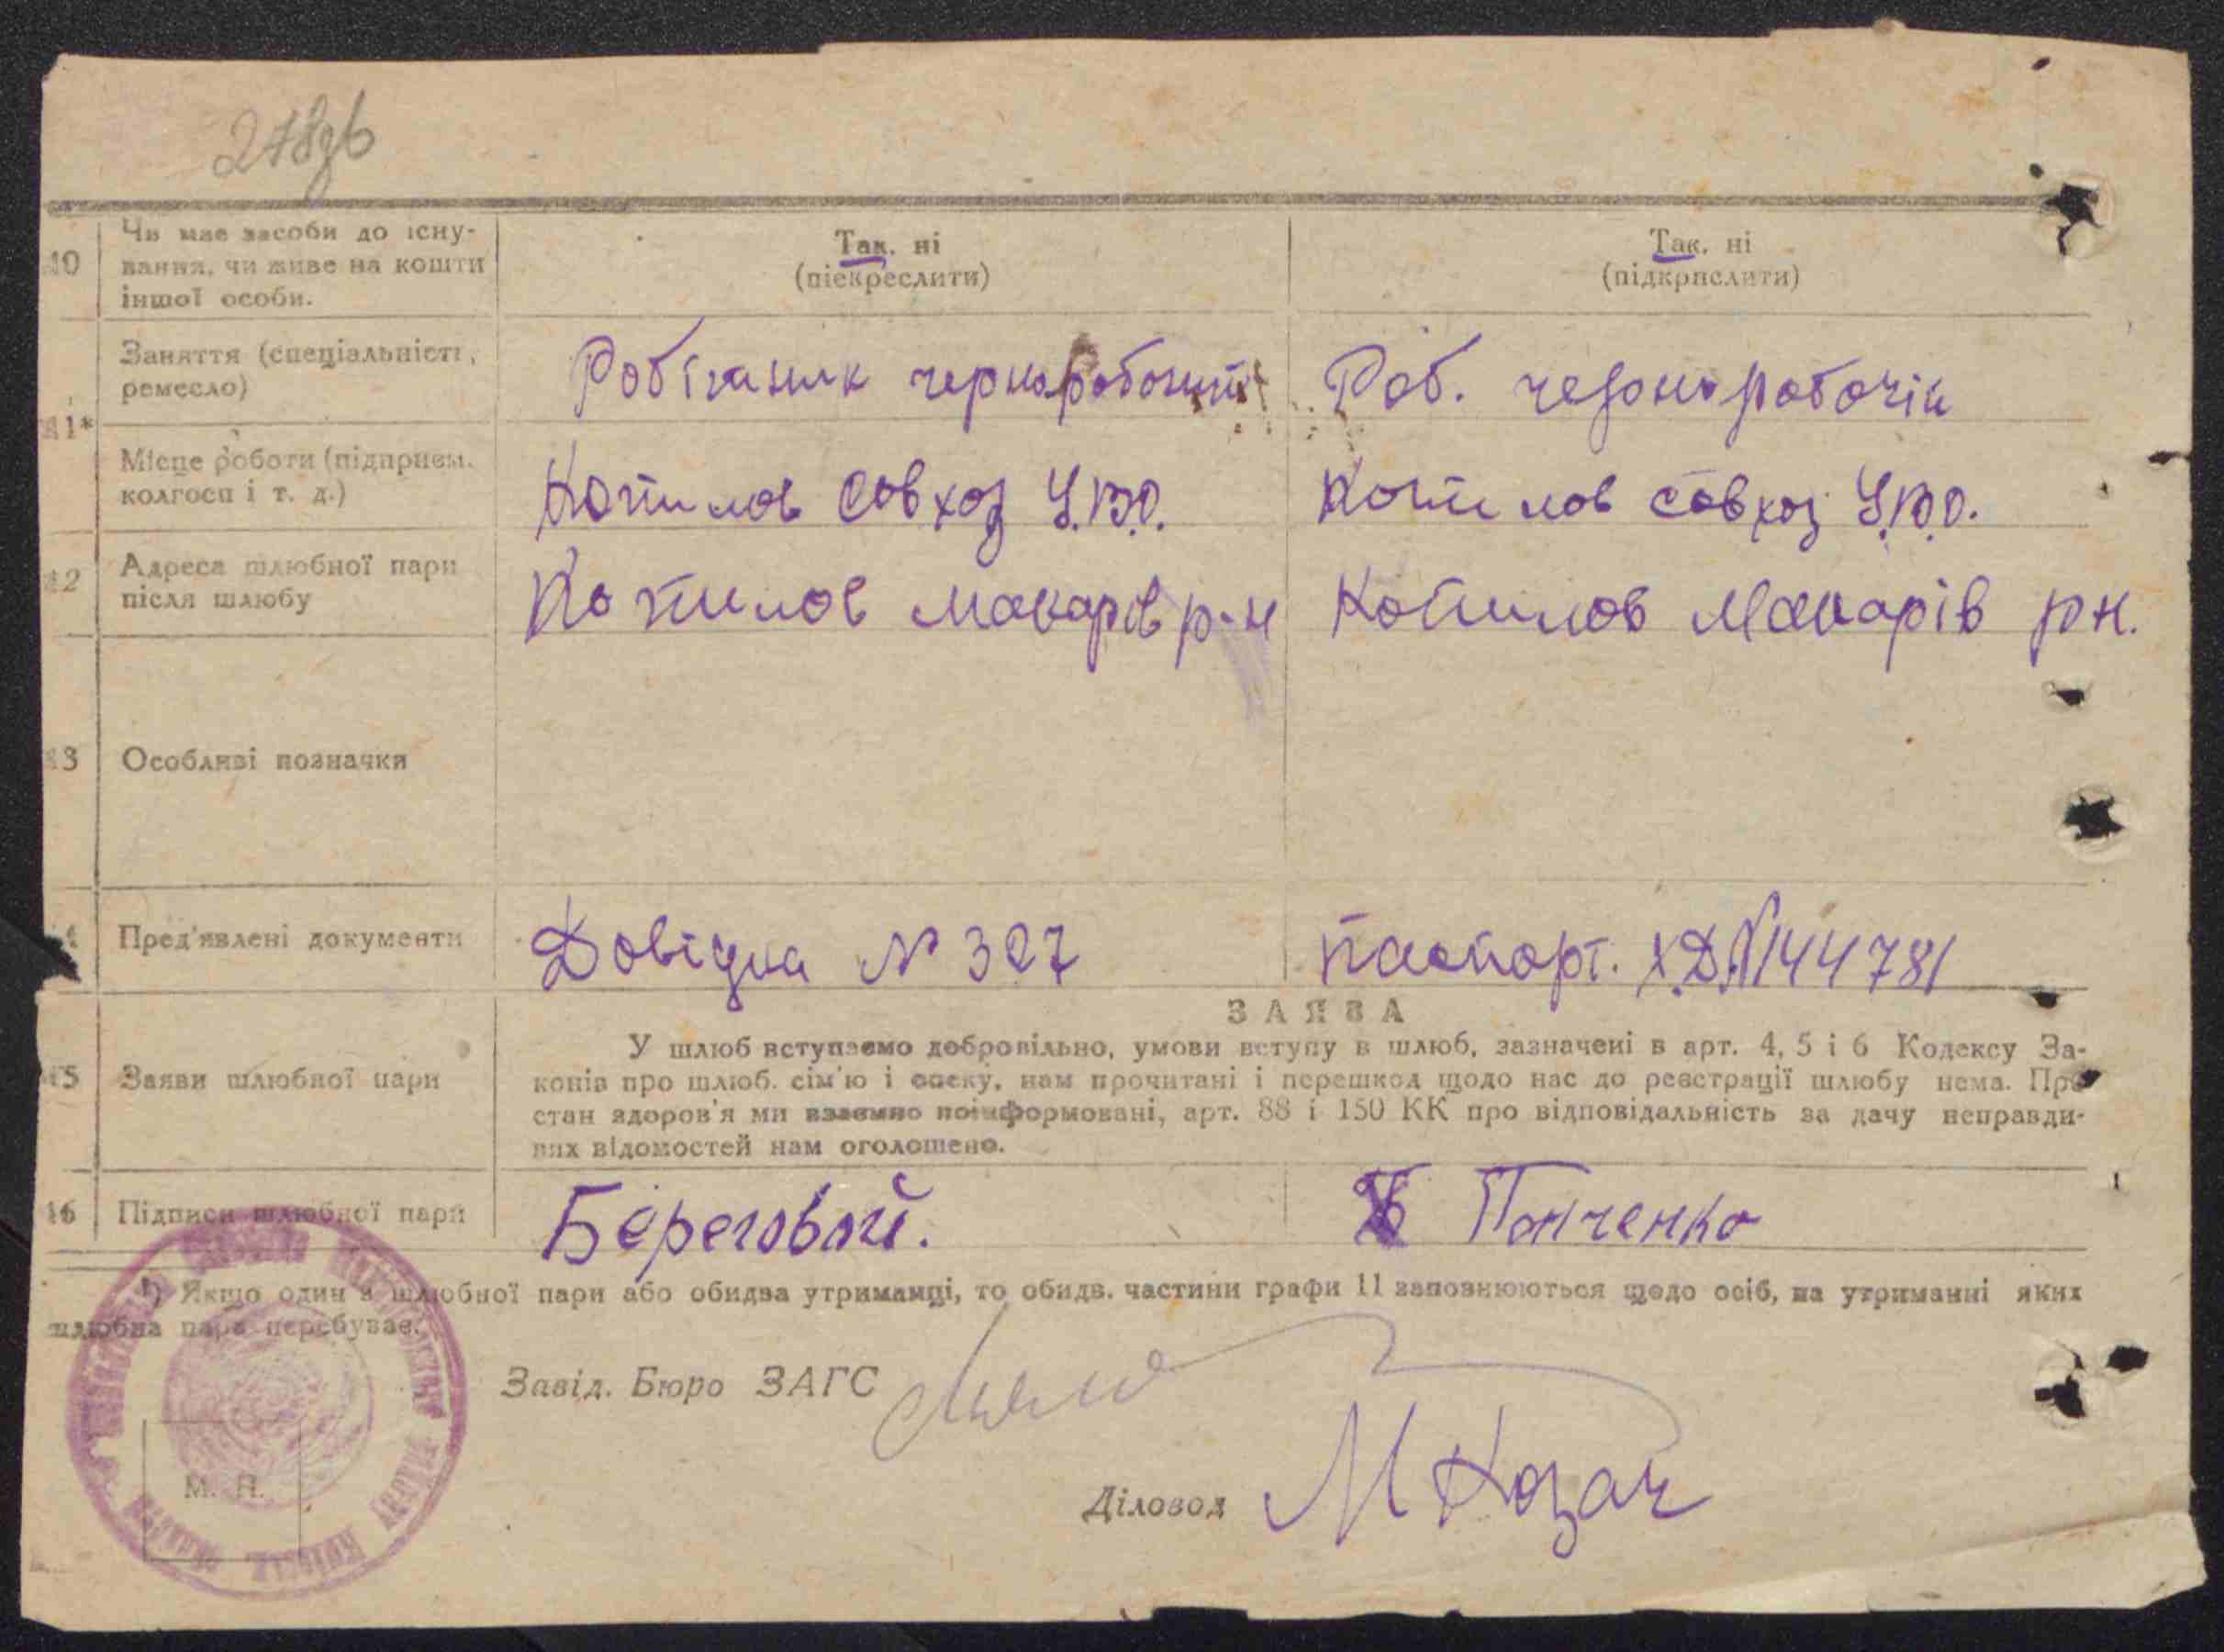 278зв
10 Чи має засоби до існу- Так. ні Так. ні
вання, чи живе на кошти (піекреслити) (підкрислити)
іншої особи.
Заняття (спеціальність, Робітаник чернаробочий Роб. чернаробочій
ремесло)
11*
Місце роботи (підприєм. Копилов совхоз У.В.О. Копилов совхоз У.В.О.
колгосп і т. д.)
12 Адреса шлюбної пари Копилов Макарів р-н Копилов Макарів рн.
після шлюбу
13 Особливі позначки
Пред'явлені документи Довідка № 327 паспорт. ХД.№144781
ЗАЯВА
У шлюб вступаємо добровільно, умови вступу в шлюб, зазначені в арт. 4, 5 і 6 Кодексу За-
15 Заяви шлюбної пари конів про шлюб. сім'ю і опеку, нам прочитані і перешкод щодо нас до реєстрації шлюбу нема. Про
стан здоров'я ми взаємно поінформовані, арт. 88 і 150 КК про відповідальність за дачу неправди-
вих відомостей нам оголошено.
16 Підписи шлюбної пари Береговой. Панченко
*) Якщо один з шлюбної пари або обидва утриманці, то обидв. частини графи 11 заповнюються щодо осіб, на утриманні яких
шлюбна пара перебуває.
Завід. Бюро ЗАГС
Діловод М Козач
М. П.